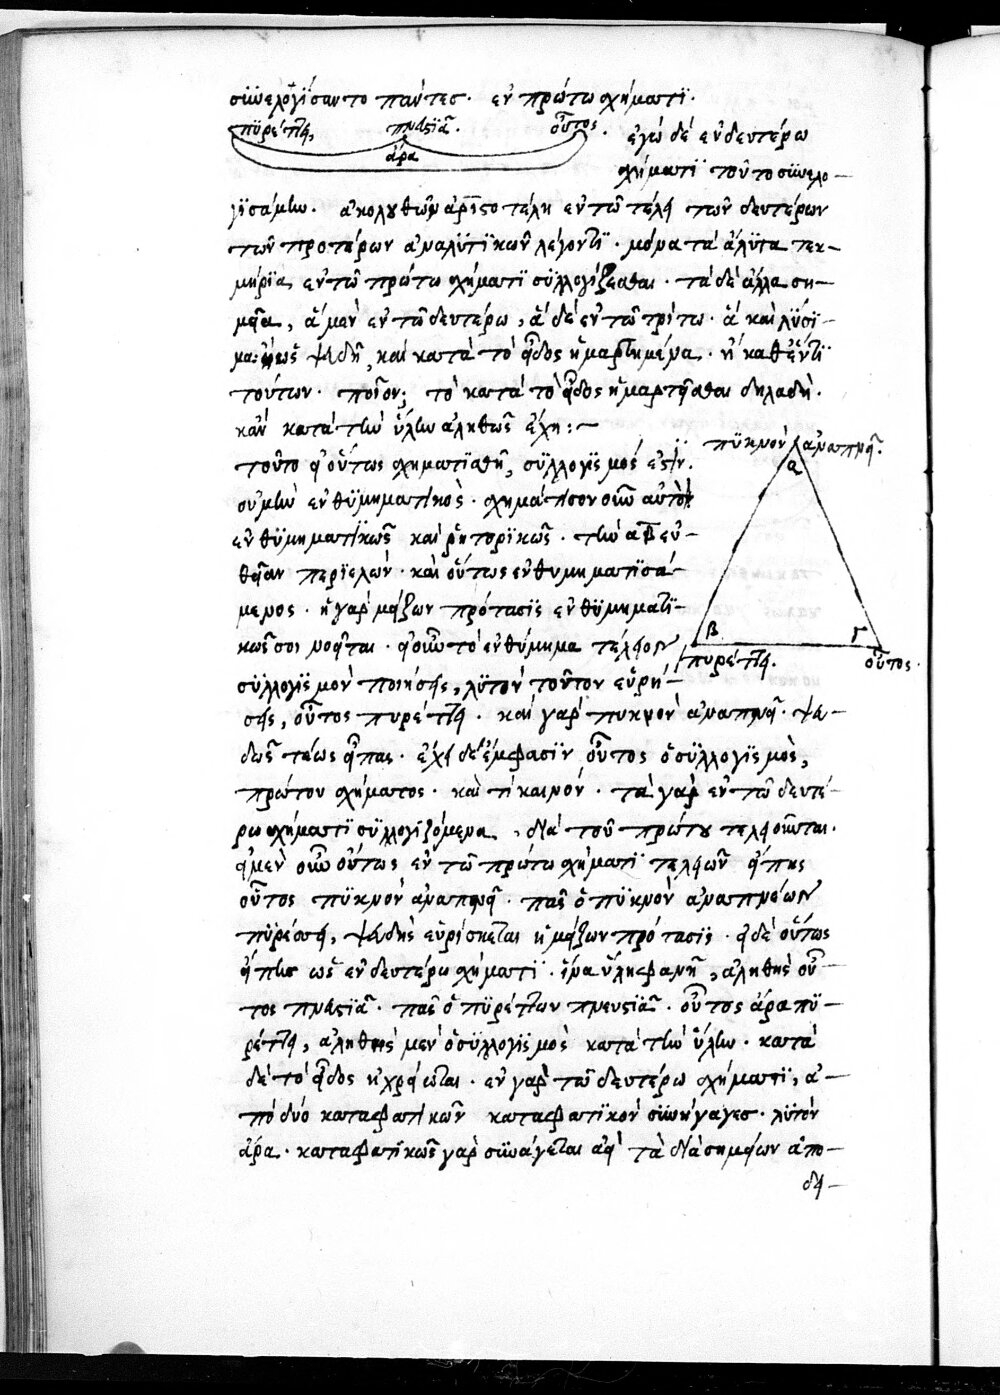 συνελογίσαντο πάντες· ἐν πρώτω σχήματι·
πυρέττει, πνευστιᾶ. οὗτος.
ἄρα
ἐγὼ δὲ ἐν δευτέρω
σχήματι τοῦτο συνελο-
γισάμην· ἀκολουθῶν ἀριστοτέλη ἐν τῶ τέλει τῶν δευτέρων
τῶν προτέρων ἀναλυτικῶν λέγοντι· μόνα τὰ ἄλυτα τεκ-
μήρια, ἐν τῶ πρώτω σχήματι συλλογίζεσθαι· τὰ δὲ ἄλλα ση-
μεῖα, ἃ μὲν ἐν τῶ δευτέρω, ἃ δὲ ἐν τῶ τρίτω· ἃ καὶ λύσι-
μα· ψευδῆ, καὶ κατὰ τὸ εἶδος ἡμαρτημένα· ἢ καθ' ἕν τι
τούτων· ποῖον; τὸ κατὰ τὸ εἶδος ἡμαρτῆσθαι δηλαδή·
κἂν κατὰ τὴν ὕλην ἀληθῶς ἔχη:-
πυκνὸν ἀναπνεῖ.
α
τοῦτο εἰ οὕτως σχηματισθῆ, συλλογισμός ἐστιν.
οὐ μὴν ἐνθυμηματικὸς· σχημάτισον οὖν αὐτὸν
ἐνθυμηματικῶς καὶ ῥητορικῶς· τὴν αβ εὐ-
θεῖαν περιελών· καὶ οὕτως ἐνθυμηματισά-
μενος· ἡ γὰρ μείζων πρότασις ἐνθυμηματι-
κῶς σοι νοεῖται· εἰ οὖν τὸ ἐνθύμημα τέλειον
β γ
πυρέττει. οὗτος.
συλλογισμὸν ποιήσεις, λυτὸν τοῦτον εὑρή-
σεις, οὗτος πυρέττει· καὶ γὰρ πυκνὸν ἀναπνεῖ· ψευ-
δῶς τέως εἶπας· ἔχει δὲ ἔμφασιν οὗτος ὁ συλλογισμὸς,
πρώτου σχήματος· καὶ τί καινόν· τὰ γὰρ ἐν τῶ δευτέ-
ρω σχήματι συλλογιζόμενα, διὰ τοῦ πρώτου τελειοῦνται·
εἰ μὲν οὖν οὕτως ἐν τῶ πρώτω σχήματι τελειῶν εἴπης
οὗτος πυκνὸν ἀναπνεῖ· πᾶς ὁ πυκνὸν ἀναπνέων
πυρέσσει, ψευδὴς εὑρίσκεται ἡ μείζων πρότασις· εἰ δὲ οὕτως
εἴπης ὡς ἐν δευτέρω σχήματι· ἵνα ὕλη φανῆ, ἀληθὴς οὗ-
τος πνευστιᾶ· πᾶς ὁ πυρέττων πνευστιᾶ· οὗτος ἄρα πυ-
ρέττει, ἀληθὴς μὲν ὁ συλλογισμὸς κατὰ τὴν ὕλην· κατὰ
δὲ τὸ εἶδος ἠχρείωται· ἐν γὰρ τῶ δευτέρω σχήματι, ἀ-
πὸ δύο καταφατικῶν καταφατικὸν συνήγαγες· λυτὸν
ἄρα· καταφατικῶς γὰρ συνάγεται ἀεὶ τὰ διὰ σημείων ἀπο-
δει-